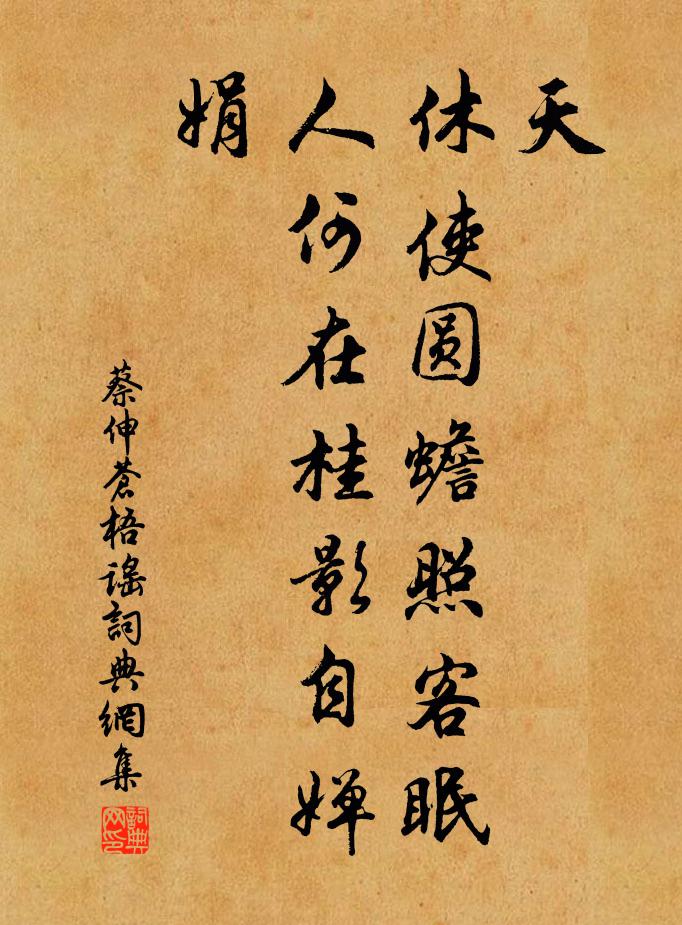 天
休使圆蟾照客眠
人何在桂影自婵
娟
蔡伸蒼梧謡詞典網集
詞典网印